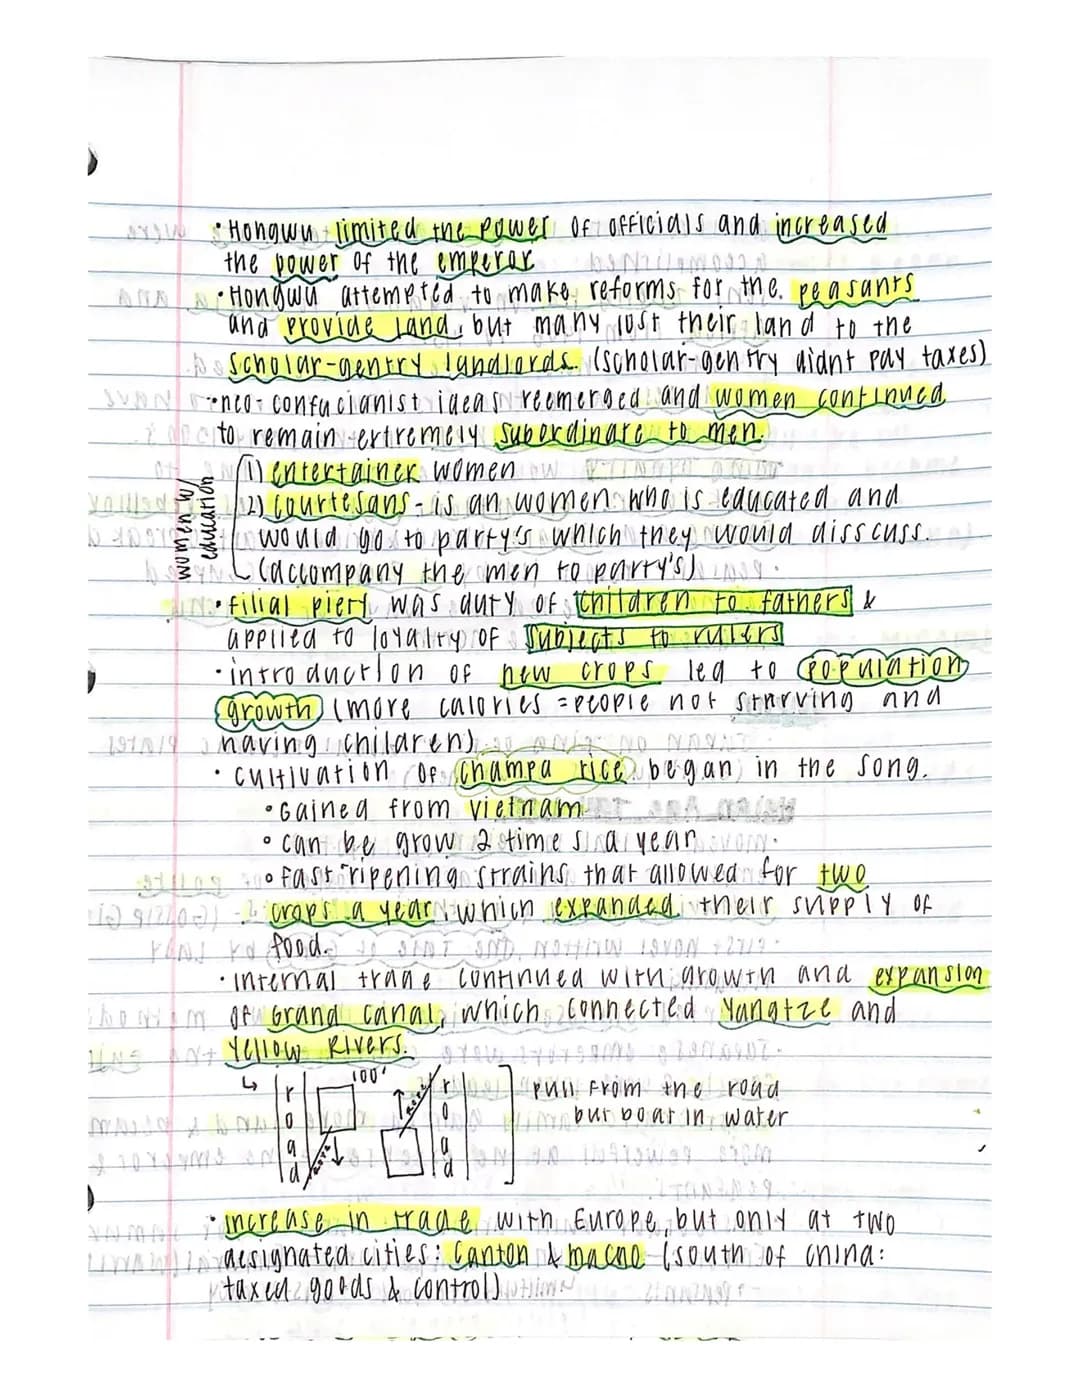 • Hongwu limited the power of officials and increased
the power of the emperor
• Hongwu attempted to make reforms for the peasants
and provide land, but many lost their land to the
scholar-gentry landlords. (scholar-gentry didnt pay taxes)
• neo-confucianist ideas reemerged and women continued
to remain extremely subordinate to men.
women w/ education
(1) entertainer women
(2) courtesans - is an women who is educated and
would go to party's which they would disscuss.
(accompany the men to party's)
• filial piety was duty of children to fathers &
applied to loyalty of subjects to rulers
• introduction of new crops led to population
growth (more calories = people not starving and
having children)
• cultivation of champa rice began in the Song.
• Gained from Vietnam
• can be grow 2 time s a year
• fast ripening strains that allowed for two
crops a year which expanded their supply of
food.
• internal trade continued with growth and expansion
of Grand Canal, which connected Yangtze and
Yellow Rivers.
↳ road 100' road
pull from the road
but boat in water
• increase in trade with Europe, but only at two
designated cities: Canton & Macao (south of china:
taxed goods & control)